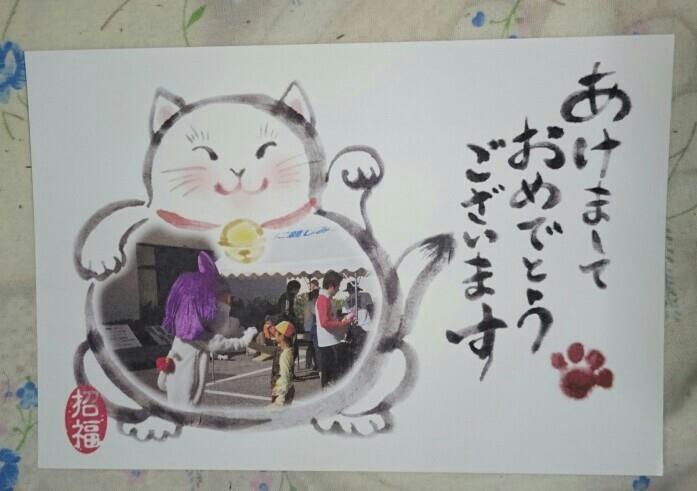 あけまして
おめでとう
ございます
に親しみ
招福